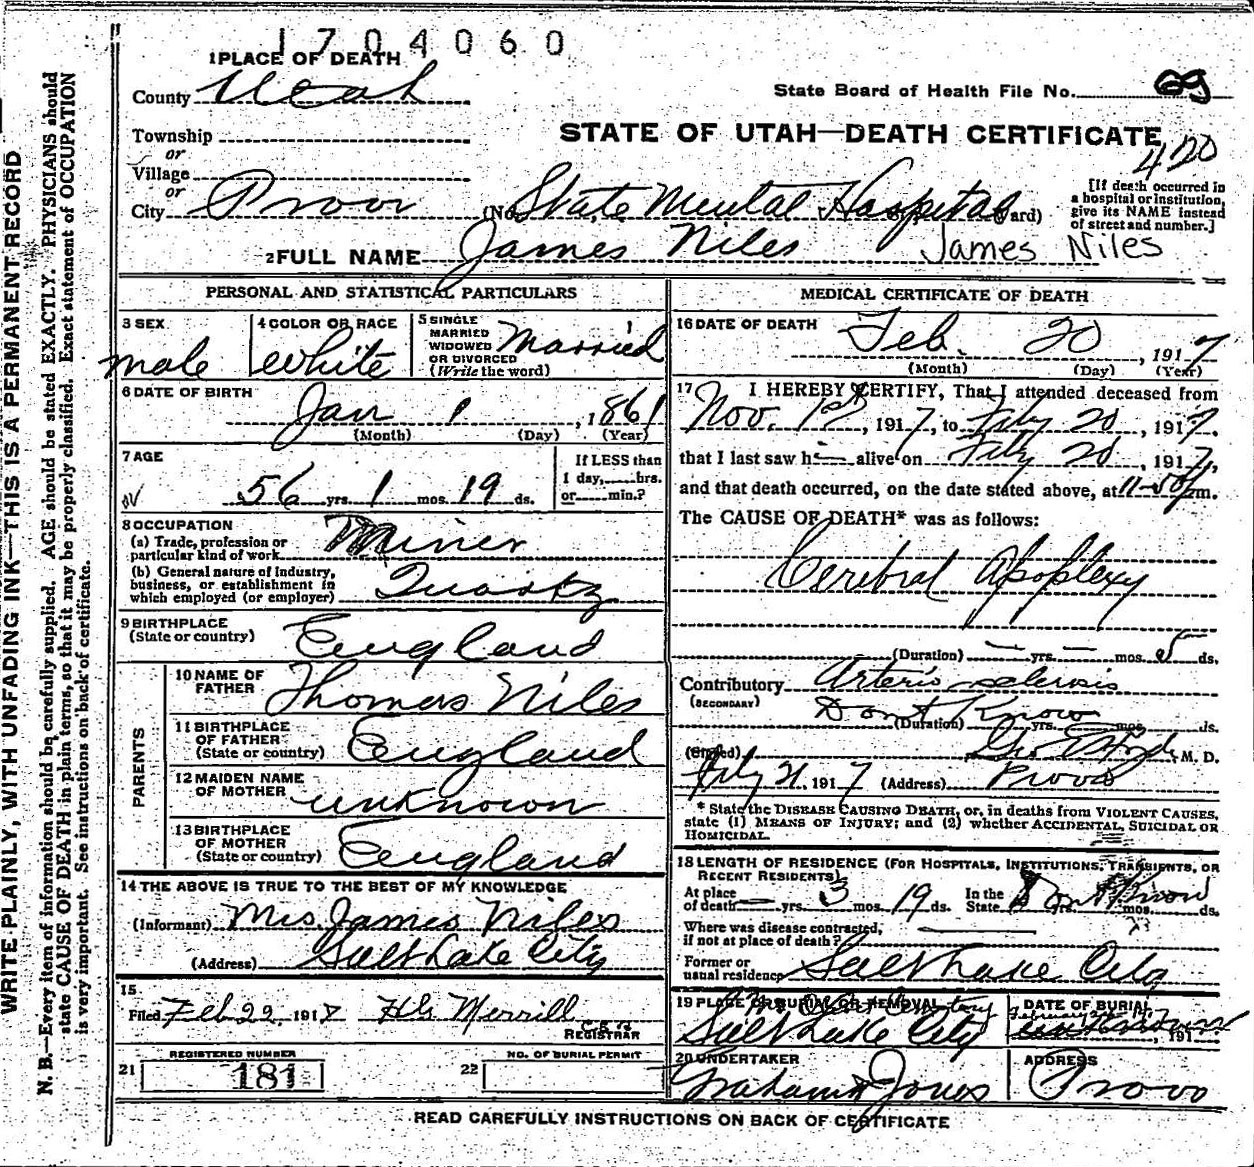 1704060
1 PLACE OF DEATH
County Utah
State Board of Health File No. 69
Township
STATE OF UTAH—DEATH CERTIFICATE
or
420
Village
or
City Provo (No. State Mental Hospital Ward)
[If death occurred in
a hospital or institution,
give its NAME instead
of street and number.]
2 FULL NAME James Niles James Niles
PERSONAL AND STATISTICAL PARTICULARS
3 SEX
male
4 COLOR OR RACE
White
5 SINGLE
MARRIED
WIDOWED
OR DIVORCED
(Write the word)
Married
6 DATE OF BIRTH
Jan 1, 1861
(Month) (Day) (Year)
7 AGE
56 yrs. 1 mos. 19 ds.
If LESS than
1 day, hrs.
or min.?
8 OCCUPATION
(a) Trade, profession or
particular kind of work Miner
(b) General nature of Industry,
business, or establishment in
which employed (or employer) Quartz
9 BIRTHPLACE
(State or country) England
PARENTS
10 NAME OF
FATHER Thomas Niles
11 BIRTHPLACE
OF FATHER
(State or country) England
12 MAIDEN NAME
OF MOTHER unknown
13 BIRTHPLACE
OF MOTHER
(State or country) England
14 THE ABOVE IS TRUE TO THE BEST OF MY KNOWLEDGE
(Informant) Mrs. James Niles
(Address) Salt Lake City
15
Filed Feb 22, 1917 H G Merrill
REGISTRAR
REGISTERED NUMBER
21 181
NO. OF BURIAL PERMIT
22
MEDICAL CERTIFICATE OF DEATH
16 DATE OF DEATH
Feb. 20, 1917
(Month) (Day) (Year)
17 I HEREBY CERTIFY, That I attended deceased from
Nov. 1st, 1917, to Feby 20, 1917,
that I last saw h alive on Feby 20, 1917,
and that death occurred, on the date stated above, at 11-50 pm.
The CAUSE OF DEATH* was as follows:
Cerebral Apoplexy
(Duration) — yrs. — mos. 5 ds.
Contributory Arterio-sclerosis
(SECONDARY) Dont Know
(Duration) yrs. mos. ds.
(Signed) Geo E Hyde M. D.
Feby 21, 1917 (Address) Provo
* State the DISEASE CAUSING DEATH, or, in deaths from VIOLENT CAUSES,
state (1) MEANS OF INJURY; and (2) whether ACCIDENTAL, SUICIDAL OR
HOMICIDAL.
18 LENGTH OF RESIDENCE (FOR HOSPITALS, INSTITUTIONS, TRANSIENTS, OR
RECENT RESIDENTS)
At place
of death — yrs. 3 mos. 19 ds.
In the
State Dont Know yrs. mos. ds.
Where was disease contracted,
if not at place of death?
Former or
usual residence Salt Lake City
19 PLACE OF BURIAL OR REMOVAL
Mt. Olivet Cemetery
Salt Lake City
DATE OF BURIAL
unknown, 191
20 UNDERTAKER
Graham & Jones
ADDRESS
Provo
READ CAREFULLY INSTRUCTIONS ON BACK OF CERTIFICATE
WRITE PLAINLY, WITH UNFADING INK—THIS IS A PERMANENT RECORD
N. B.—Every item of information should be carefully supplied. AGE should be stated EXACTLY. PHYSICIANS should
state CAUSE OF DEATH in plain terms, so that it may be properly classified. Exact statement of OCCUPATION
is very important. See instructions on back of certificate.